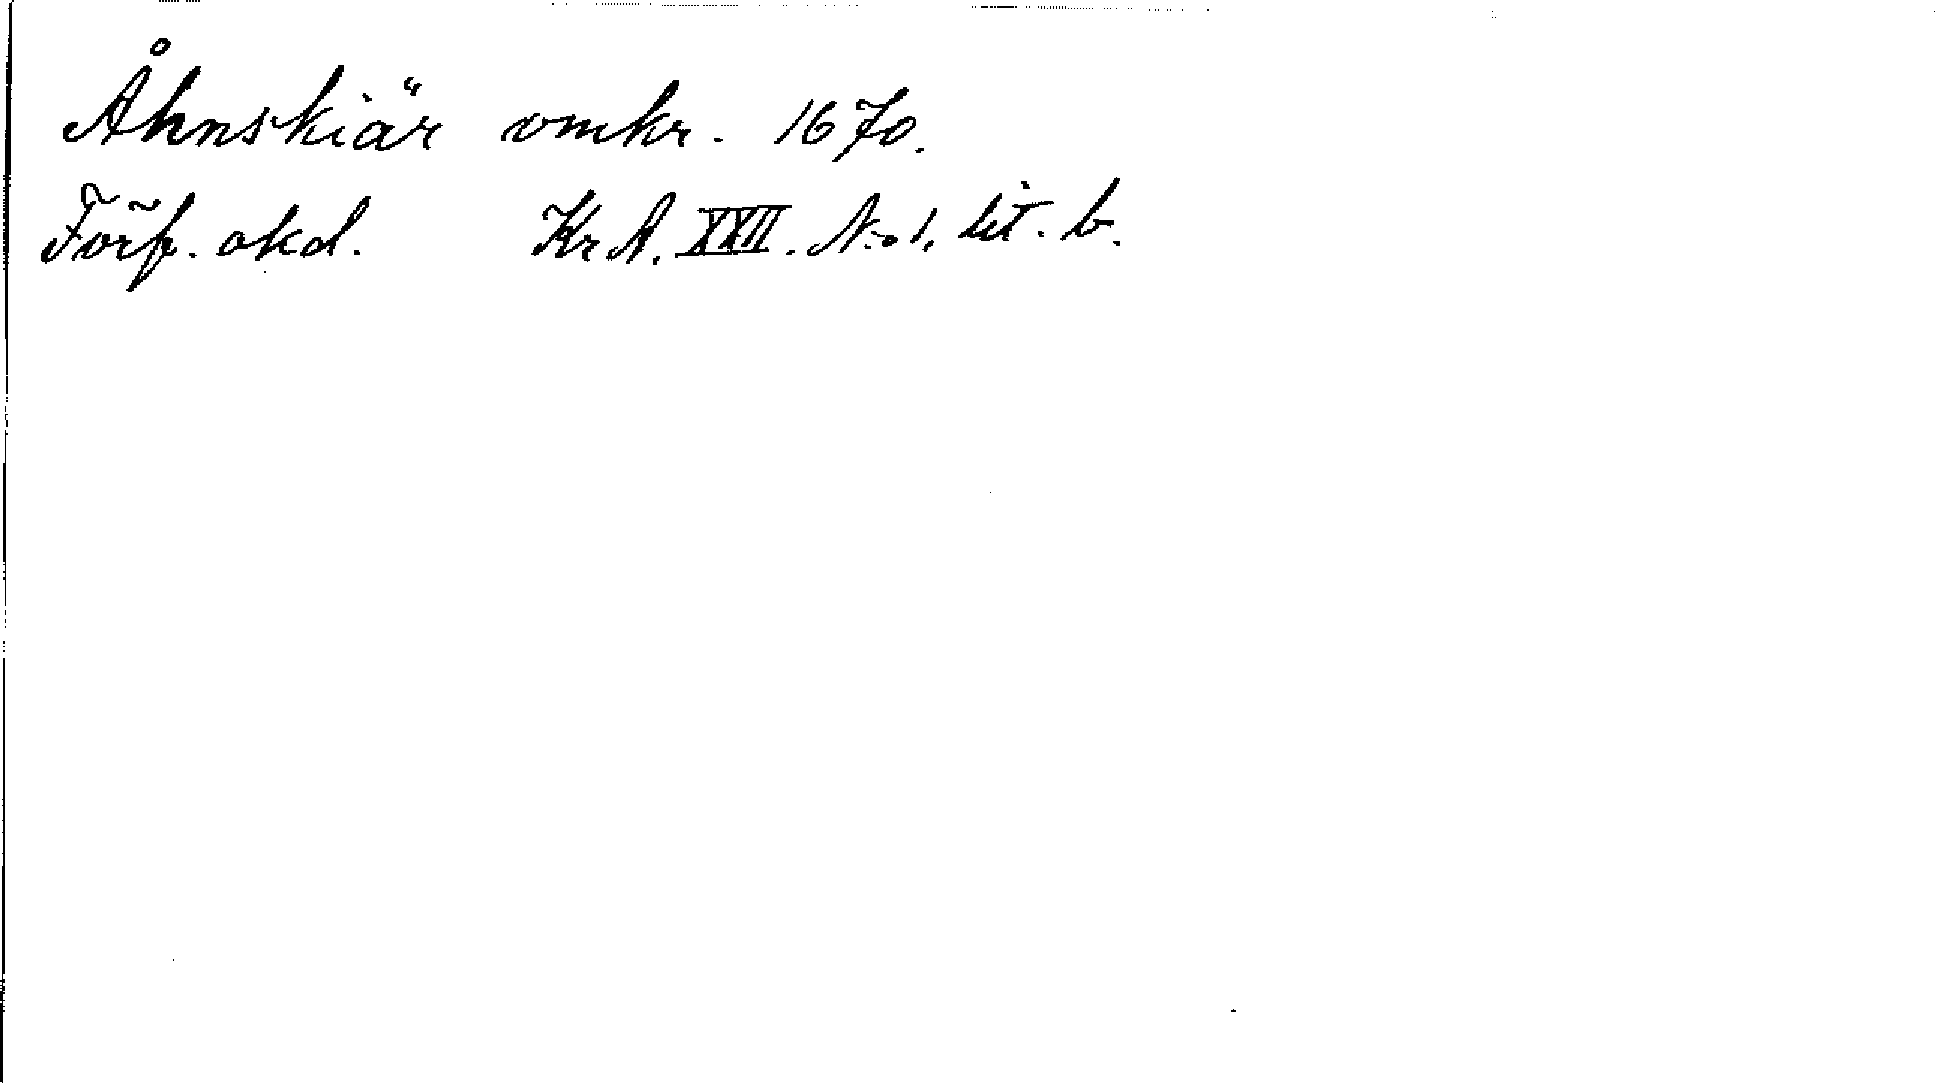 Åhnskiär omkr. 1670.
Förf. okd. Kr A. XXII. N:o 1, lit. b.